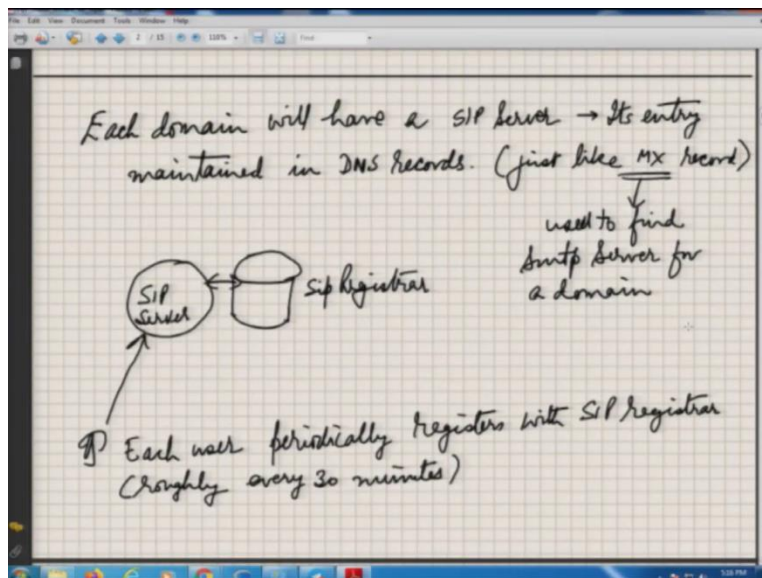 File Edit View Document Tools Window Help
2 / 15 110% Find
Each domain will have a SIP Server → Its entry
maintained in DNS records. (just like MX record)
used to find
Smtp Server for
a domain
SIP
Server
Sip Registrar
Each user periodically registers with SIP registrar
(roughly every 30 minutes)
5:16 PM